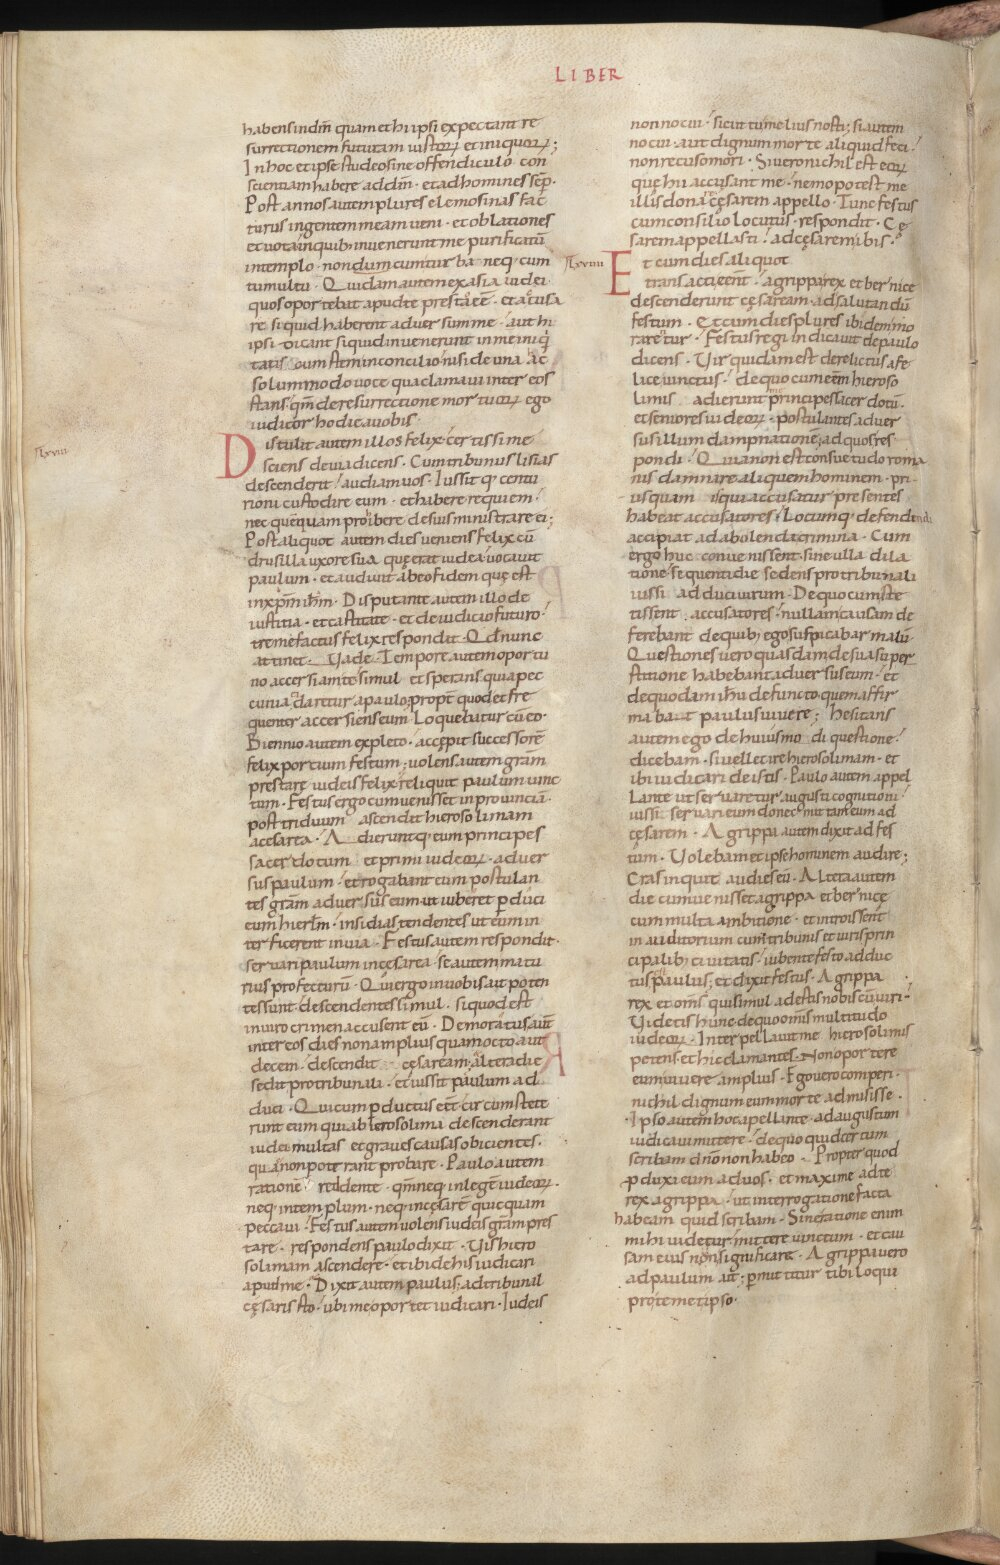 LIBER
habens in dm̄ quam et hi ipsi expectant re
surrectionem futuram iustoꝝ et iniquoꝝ;
In hoc et ipse studeo sine offendiculo con
scientiam habere ad dm̄ · et ad homines sēp·
Post annos autem plures elemosinas fac
turus in gentem meam veni · et oblationes
et vota in quib; invenerunt me purificatū
in templo · non dum cum turba neq; cum
tumultu · Quidam autem ex asia iudei
quos oportebat apud te presto eē · et accusa
re siquid haberent adversum me · aut hi
ipsi dicant siquid invenerunt in me iniq
tatis cum stem in concilio · nisi de una ac
solum modo voce qua clamavi inter eos
stans · qm̄ de resurrectione mortuoꝝ ego
iudicor hodie a vobis
lxviii
Distulit autem illos felix · certissime
sciens de via dicens · Cum tribunus lisias
descenderit audiam vos · Iussitq; centu
rioni custodire eum · et habere requiem ·
nec quequam prohibere de suis ministrare ei;
Post aliquot autem dies veniens felix cū
drusilla uxore sua que erat iudea vocavit
paulum · et audivit ab eo fidem que est
in xp̄m ihm̄ · Disputante autem illo de
iustitia · et castitate · et de iudicio futuro ·
tremefactus felix respondit · Qd̄ nunc
attinet · Vade · Tempore autem oportu
no accersiam te simul et sperans quia pec
cunia daretur a paulo propt̄ quod et fre
quenter accersiens eum · Loquebatur cū eo·
Biennio autem expleto · accepit successorē
felix portium festum; volens autem gr̄am
prestare iudeis felix reliquit paulum vinc
tum · Festus ergo cum venisset in provinciā·
post triduum ascendit hierosolimam
a cesarea · Adieruntq; eum principes
sacerdotum et primi iudeoꝝ · adver
sus paulum · et rogabant eum postulan
tes gr̄am adversus eum · ut iuberet pduci
eum hierlm̄ · insidias tendentes ut eum in
terficerent in via · Festus autem respondit ·
servari paulum in cesarea · se autem matu
rius profecturū · Qui ergo in vobis ait poten
tes sunt · descendentes simul · siquod est
in viro crimen accusent eū · Demoratus aut̄
inter eos dies non amplius quam octo aut
decem · descendit cesaream · altera die
sedit pro tribunali · et iussit paulum ad
duci · Qui cum pductus eēt · circumstete
runt eum qui ab ierosolima descenderant
iudei multas et graves causas obicientes ·
quas non poterant probare · Paulo autem
rationē reddente · qm̄ neq; in legē iudeoꝝ ·
neq; in templum · neq; in cesarē quicquam
peccavi · Festus autem volens iudeis gr̄am pres
tare · respondens paulo dixit · Vis hiero
solimam ascendere · et ibi de his iudicari
apud me · Dixit autem paulus; ad tribunal
cesaris sto · ubi me oportet iudicari · Iudeis
non nocui · sicut tu melius nosti; si autem
nocui · aut dignum morte aliquid feci ·
non recuso mori · Si vero nichil est eoꝝ
quę hii accusant me · nemo potest me
illis donare cęsarem appello · Tunc festus
cum consilio locutus · respondit · Cę
sarem appellasti · ad cęsarem ibis ·
lxviiii
Et cum dies aliquot
transacti eēnt · agrippa rex et bernice
descenderunt cęsaream · ad salutandū
festum · Et cum dies plures ibidem mo
rarētur · Festus regi indicavit de paulo
dicens · Vir quidam est derelictus a fe
lice vinctus · de quo cum eēm hieroso
limis adierunt me principes sacerdotū·
et seniores iudeoꝝ · postulantes adver
sus illum dampnationē; ad quos res
pondi · Quia non est consuetudo roma
nis damnare aliquem hominem · pri
usquam is qui accusatur presentes
habeat accusatores · Locumq; defendendi
accipiat ad abolenda crimina · Cum
ergo huc convenissent · sine ulla dila
tione · sequenti die sedens pro tribunali
iussi adduci virum · De quo cum ste
tissent accusatores · nullam causam de
ferebant de quib; ego suspicabar malū·
Questiones vero quasdam de sua super
stitione habebant adversus eum · et
de quodam ihu defuncto quem affir
mabat paulus vivere; hesitans
autem ego de huiusmodi questione ·
dicebam · si vellet ire hierosolimam · et
ibi iudicari de istis · Paulo autem appel
lante ut servaretur augusti cognitioni ·
iussi servari eum donec mittam eum ad
cęsarem · Agrippa autem dixit ad fes
tum · Volebam et ipse hominem audire;
Cras inquit audies eū · Altera autem
die cum venisset agrippa et bernice
cum multa ambitione · et introissent
in auditorium cum tribunis et viris prin
cipalib; civitatis · iubente festo adduc
tus est paulus; et dixit festus · Agrippa
rex et om̄s qui simul adestis nobiscū viri ·
Videtis hunc de quo omnis multitudo
iudeoꝝ · Interpellavit me hierosolimis
petens et hic clamantes · Non oportere
eum vivere amplius · Ego vero comperi ·
nichil dignum eum morte admisisse ·
Ipso autem hoc apellante · ad augustum
iudicavi mittere · de quo quid certum
scribam dn̄o non habeo · Propter quod
pduxi eum ad vos · et maxime ad te
rex agrippa · ut interrogatione facta
habeam quid scribam · Sine ratione enim
mihi videtur mittere vinctum · et cau
sam eius non significare · Agrippa vero
ad paulum ait; pmittitur tibi loqui
pro temetipso·